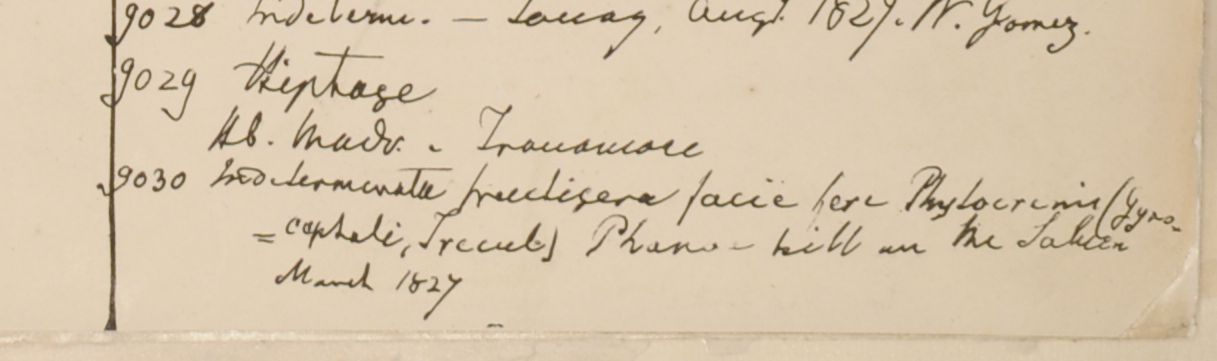 9028 Indeterm. — Tavoy, Augt. 1827. W. Gomez.
9029 Hiptage
Hb. Madr. - Travancore
9030 Indeterminata fructigera facie fere Phytocrenis (Gyno-
=cephali, Trecul) Phanoe-hill on the Saluen
March 1827